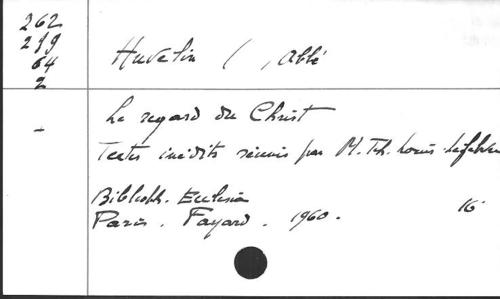 262
219
64
2
Huvelin ( , Abbé
-
Le regard du Christ
Textes inédits réunis par M. Th. Louis-Lefebvre
Biblioth. Ecclesia
Paris. Fayard. 1960. 16°